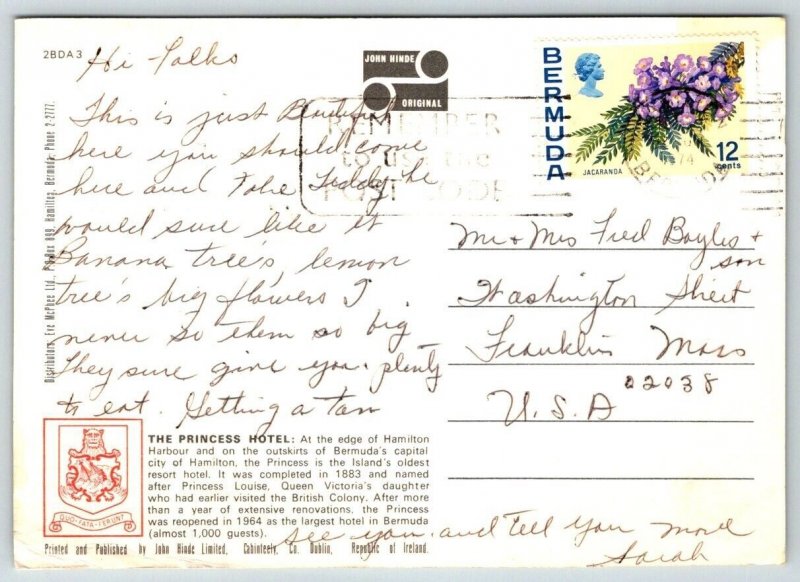 2BDA3
JOHN HINDE
ORIGINAL
BERMUDA
JACARANDA
12
cents
REMEMBER
to use the
POST CODE
74
Hi Folks
This is just Beautiful
here you should come
here and take Teddy he
would sure like it
Banana tree's, lemon
tree's big flowers I
never so them so big
They sure give you plenty
to eat. Getting a tan
see you and tell you more
Sarah
Mr + Mrs Fred Boyles +
son
Washington Street
Franklin Mass
02038
U.S.A
Distributors, Eve McPhee Ltd., P.O. Box 899, Hamilton, Bermuda, Phone 2-2777.
QUO FATA FERUNT
THE PRINCESS HOTEL: At the edge of Hamilton
Harbour and on the outskirts of Bermuda's capital
city of Hamilton, the Princess is the Island's oldest
resort hotel. It was completed in 1883 and named
after Princess Louise, Queen Victoria's daughter
who had earlier visited the British Colony. After more
than a year of extensive renovations, the Princess
was reopened in 1964 as the largest hotel in Bermuda
(almost 1,000 guests).
Printed and Published by John Hinde Limited, Cabinteely, Co. Dublin, Republic of Ireland.